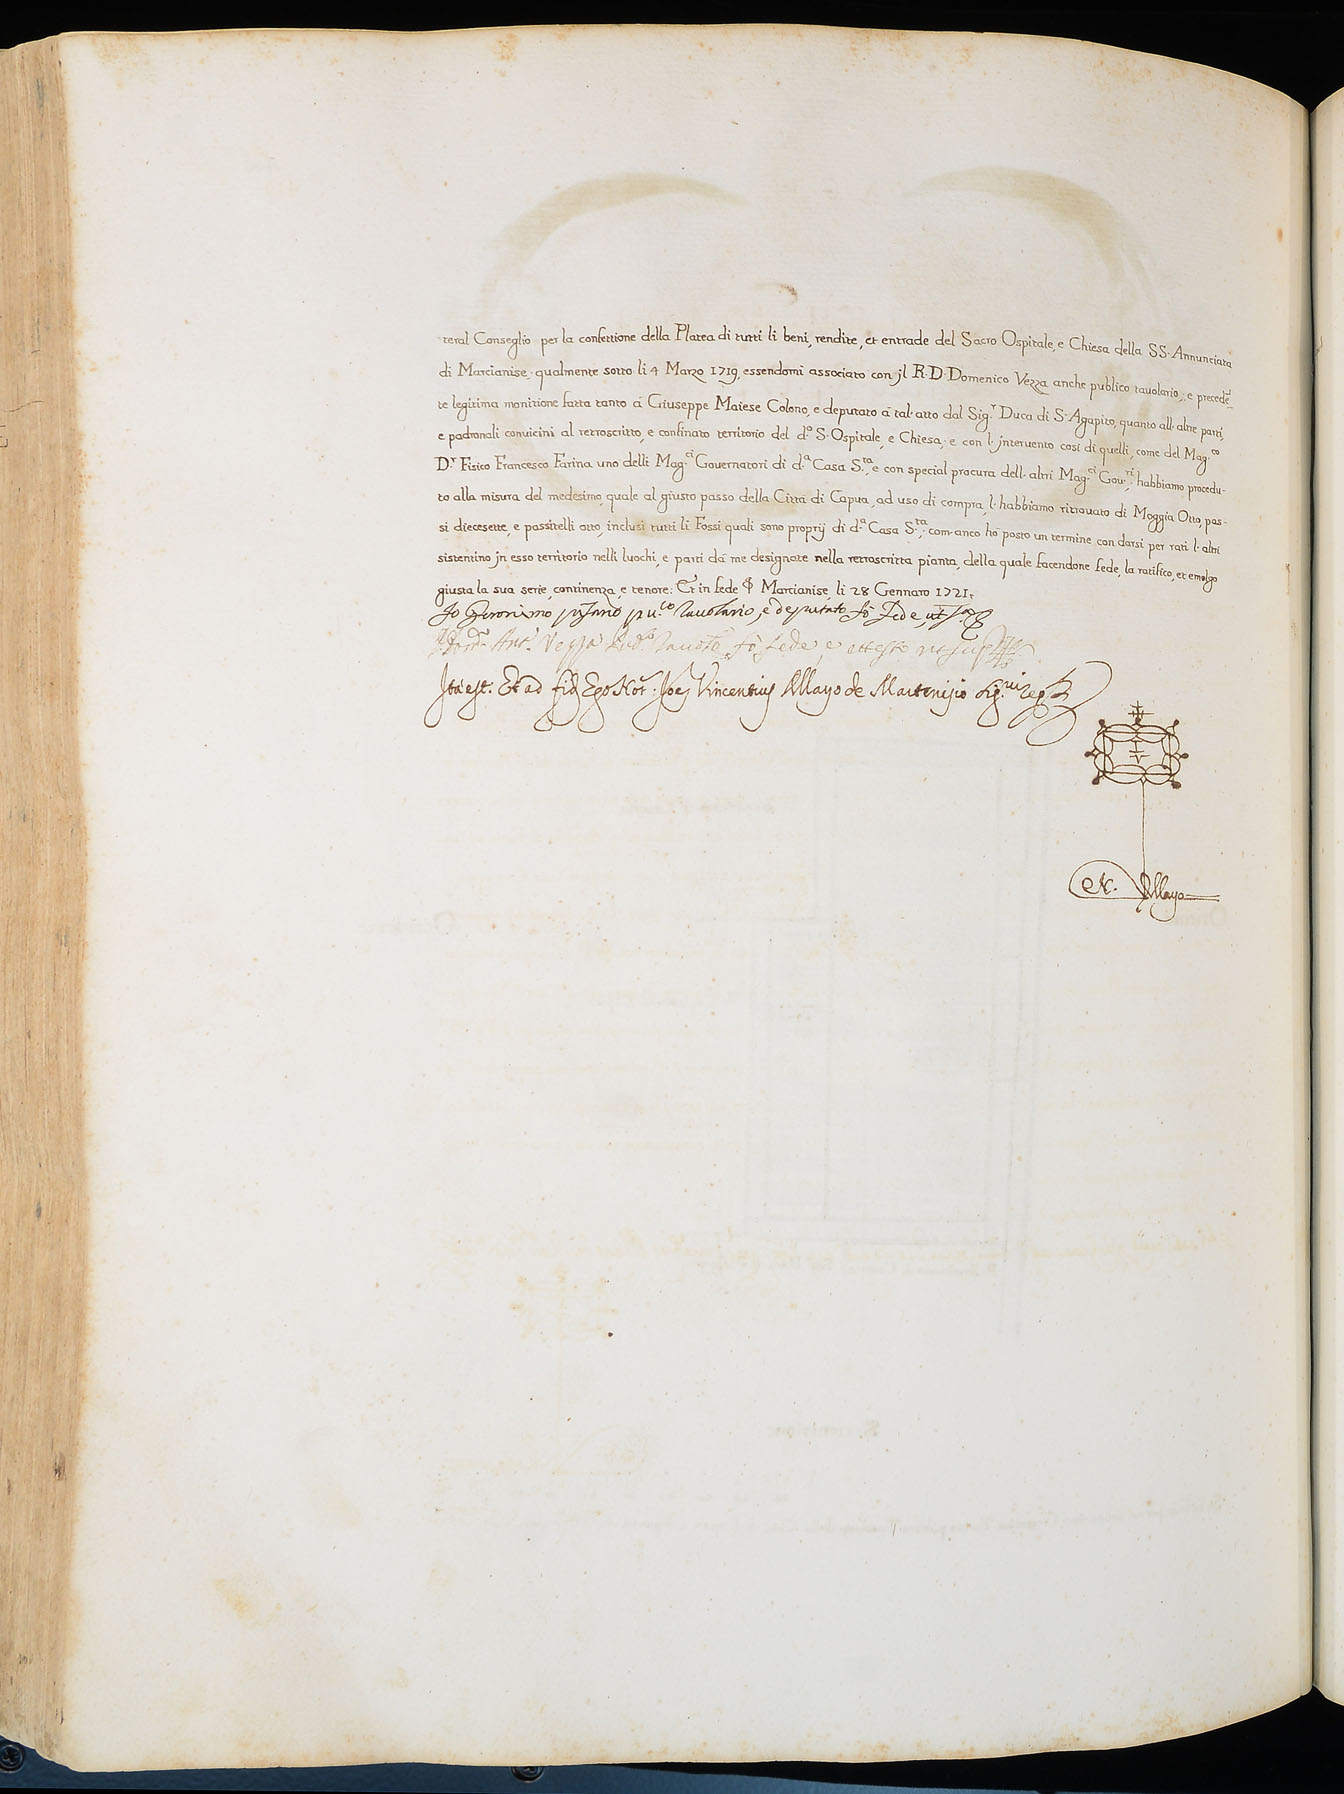 teral Conseglio per la confettione della Platea di tutti li beni, rendite, et entrade del Sacro Ospitale, e Chiesa della SS. Annunciata
di Marcianise, qualmente sotto li 4 Marzo 1719, essendomi associato con jl R. D. Domenico Vezza anche publico tavolario, e precedẽ-
te legitima monitione fatta tanto à Giuseppe Maiese Colono, e deputato à tal. atto dal Sig.r Duca di S. Agapito, quanto all. altre parti,
e padronali convicini al retroscritto, e confinato territorio del d.o S. Ospitale, e Chiesa, e con l. jntervento così di quelli, come del Mag.co
D.r Fisico Francesco Farina uno delli Mag.ci Governatori di d.a Casa S.ta, e con special procura dell. altri Mag.ci Gov.ri, habbiamo procedu-
to alla misura del medesimo, quale al giusto passo della Città di Capua, ad uso di compra, l. habbiamo ritrovato di Moggia Otto, pas-
si diecesette, e passitelli otto, inclusi tutti li Fossi quali sono proprij di d.a Casa S.ta, com. anco hò posto un termine con darsi per rati l. altri
sistentino jn esso territorio nelli luochi, e parti dà me designate nella retroscritta pianta, della quale facendone fede, la ratifico, et emolgo
giusta la sua serie, continenza, e tenore: Et in fede ꝑ Marcianise, li 28 Gennaro 1721.
Io Geronimo pu.co Tavolario, e deputato fò fede, ut s.a
Vezza Tavol.o fò fede, e attesto ut sup.a
Ita est. Et ad fid. Ego Not.r Joes Vincentius Mayo de Martenisio sig.vi reg.s
N. Mayo